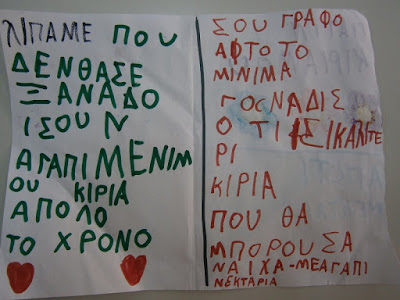 ΛΙΠΑΜΕ ΠΟΥ
ΔΕΝΘΑΣΕ
ΞΑΝΑΔΟ
ΙΣΟΥΝ
ΑΓΑΠΙΜΕΝΙΜ
ΟΥ ΚΙΡΙΑ
ΑΠΟΛΟ
ΤΟ ΧΡΟΝΟ
ΣΟΥ ΓΡΑΦΟ
ΑΦΤΟ ΤΟ
ΜΙΝΙΜΑ
ΓΟΣΝΑΔΙΣ
Ο ΤΙ ΙΣΕ Ι ΚΑΛΙΤΕ
ΡΙ
ΚΙΡΙΑ
ΠΟΥ ΘΑ
ΜΠΟΡΟΥΣΑ
ΝΑ ΙΧΑ-ΜΕΑΓΑΠΙ
ΝΕΚΤΑΡΙΑ